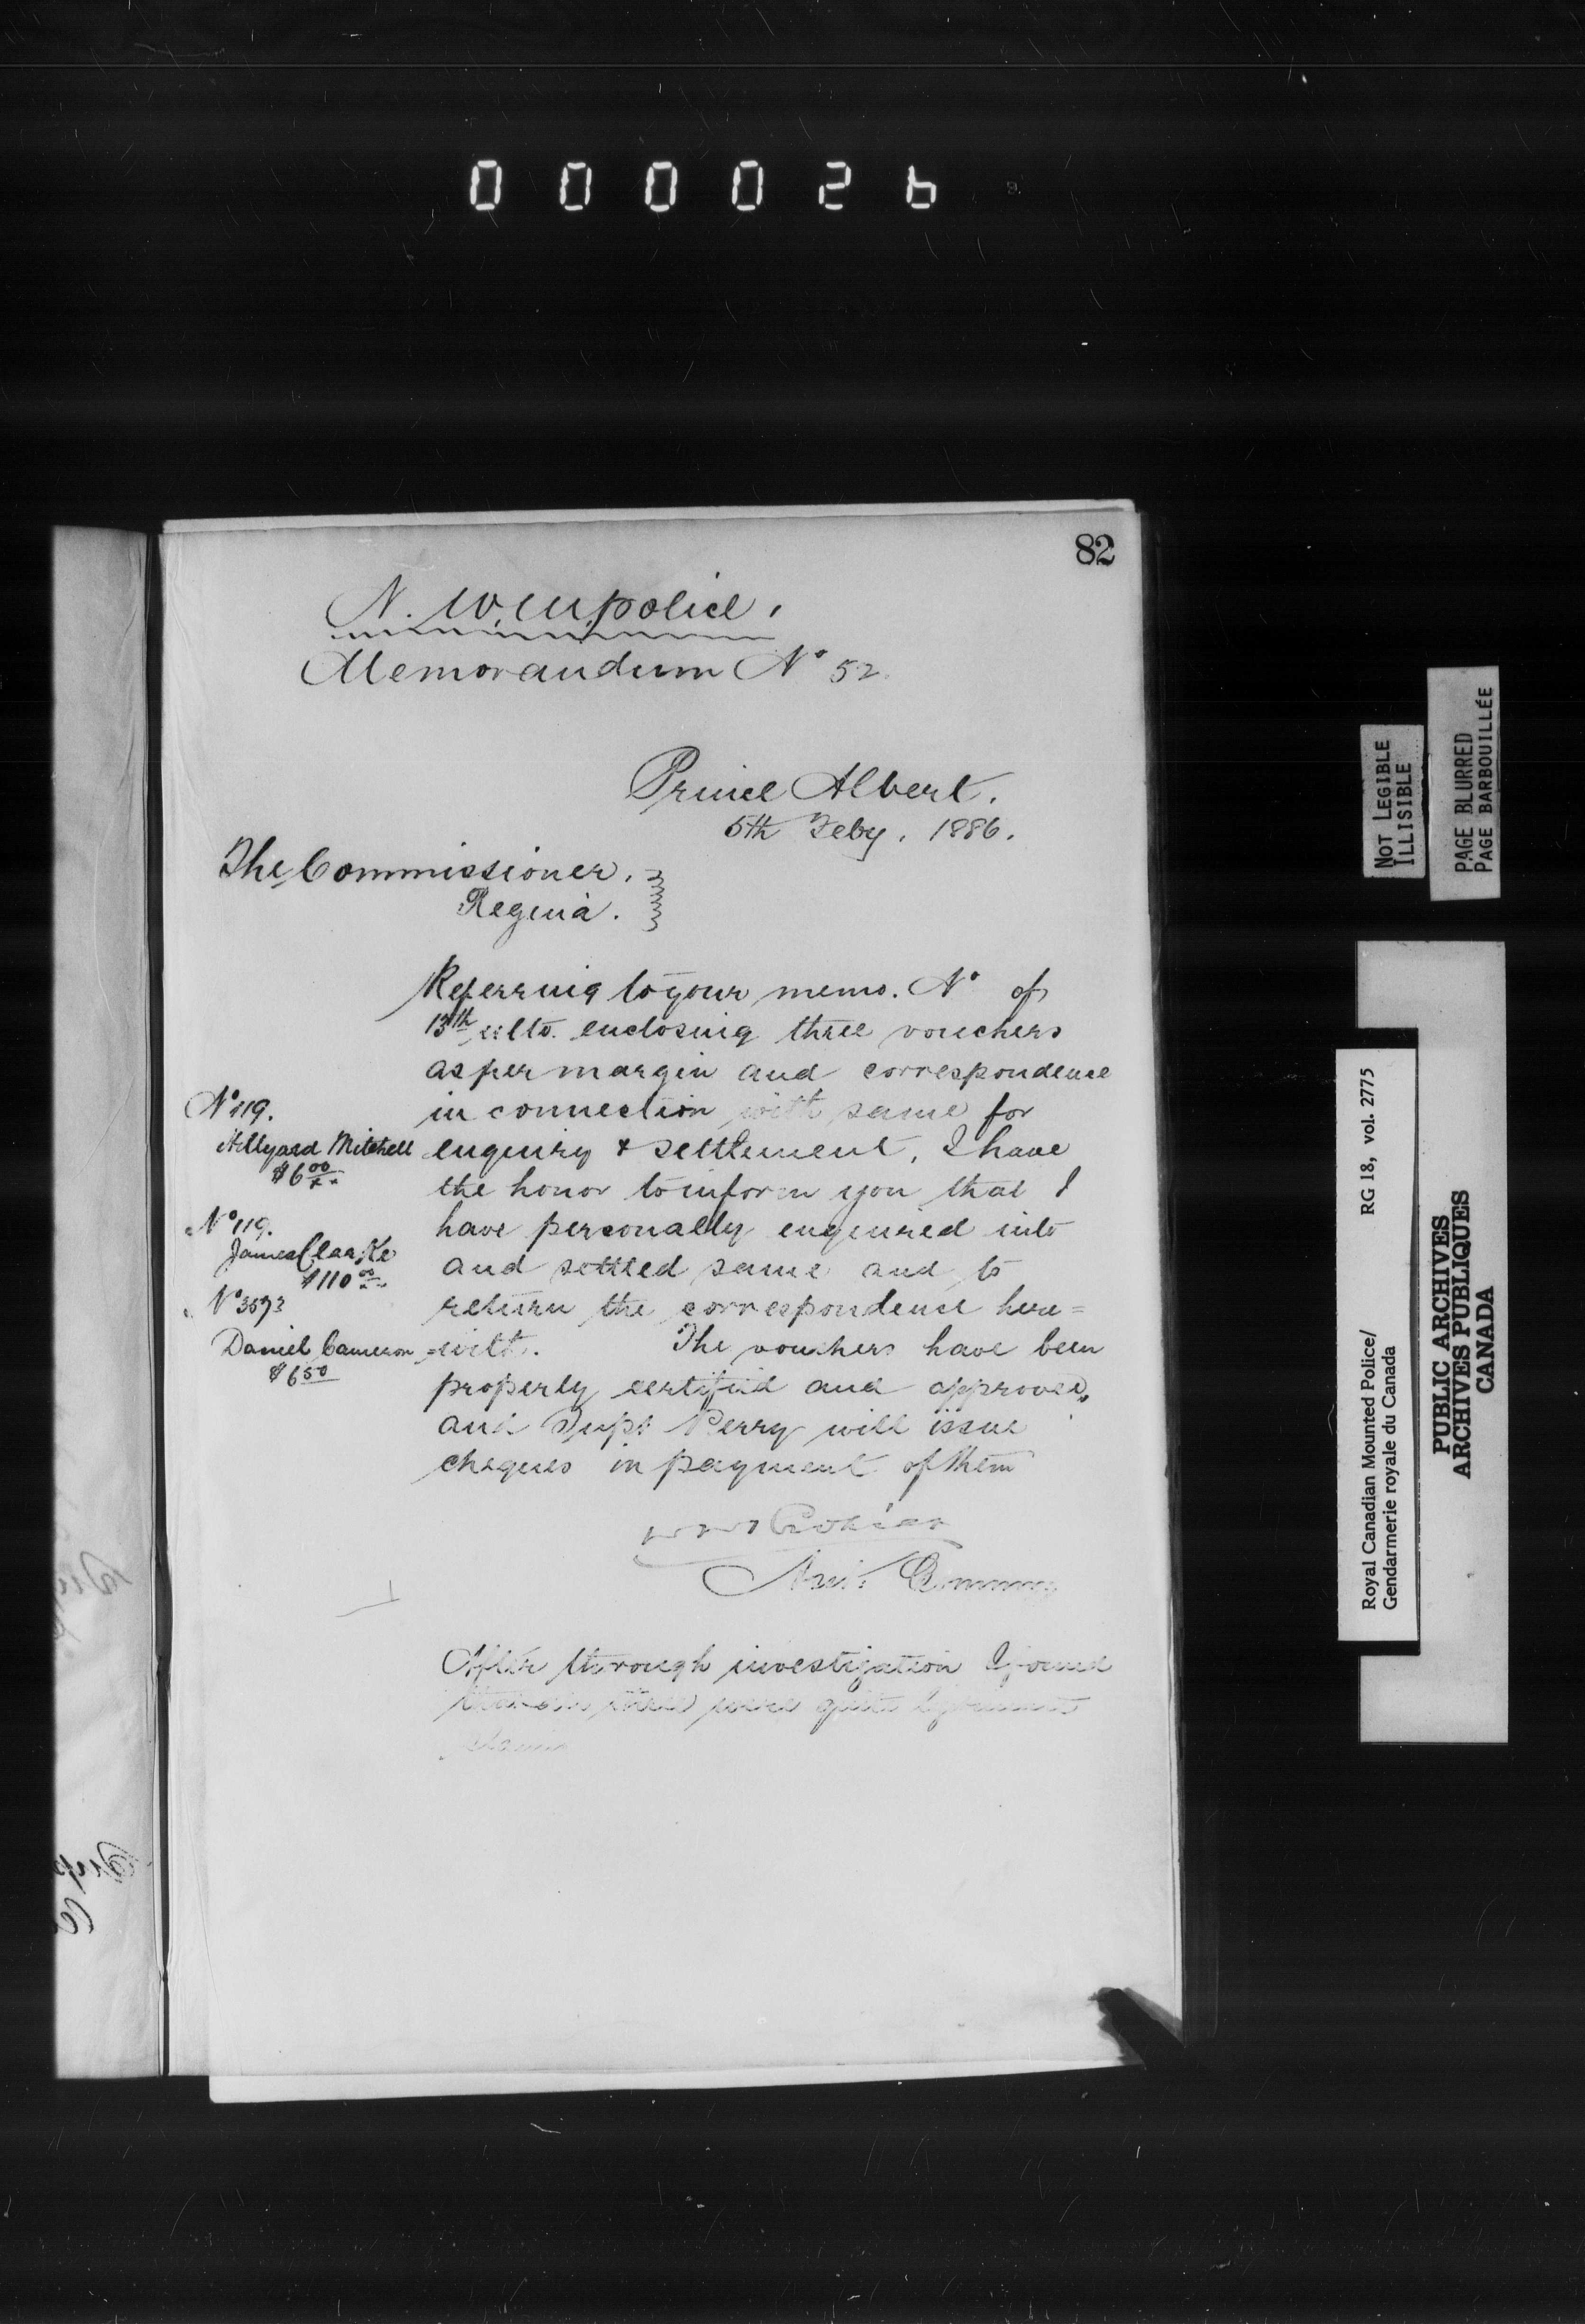 000026
82
N. W. M. police.
Memorandum No 52.
Prince Albert.
5th Feby. 1886.
The Commissioner.
Regina.
Referring to your memo. No of
13th ulto. enclosing three vouchers
as per margin and correspondence
in connection with same for
enquiry & settlement, I have
the honor to inform you that I
have personally enquired into
and settled same and to
return the correspondence here=
=with. The vouchers have been
properly certified and approved,
and Supt Perry will issue
cheques in payment of them
No 119.
Hillyard Mitchell
$6 00
No 119.
James Clarke
$110 00
No 3573
Daniel Cameron
$6 50
Crozier
Asst. Commr
After through investigation I found
that these were quite
claims
NOT LEGIBLE
ILLISIBLE
PAGE BLURRED
PAGE BARBOUILLÉE
Royal Canadian Mounted Police/ RG 18, vol. 2775
Gendarmerie royale du Canada
PUBLIC ARCHIVES
ARCHIVES PUBLIQUES
CANADA